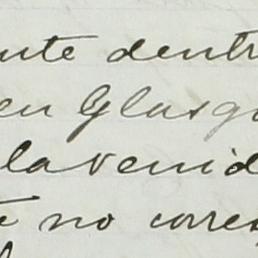 nte dentr
en Glasg
la venid
no corres